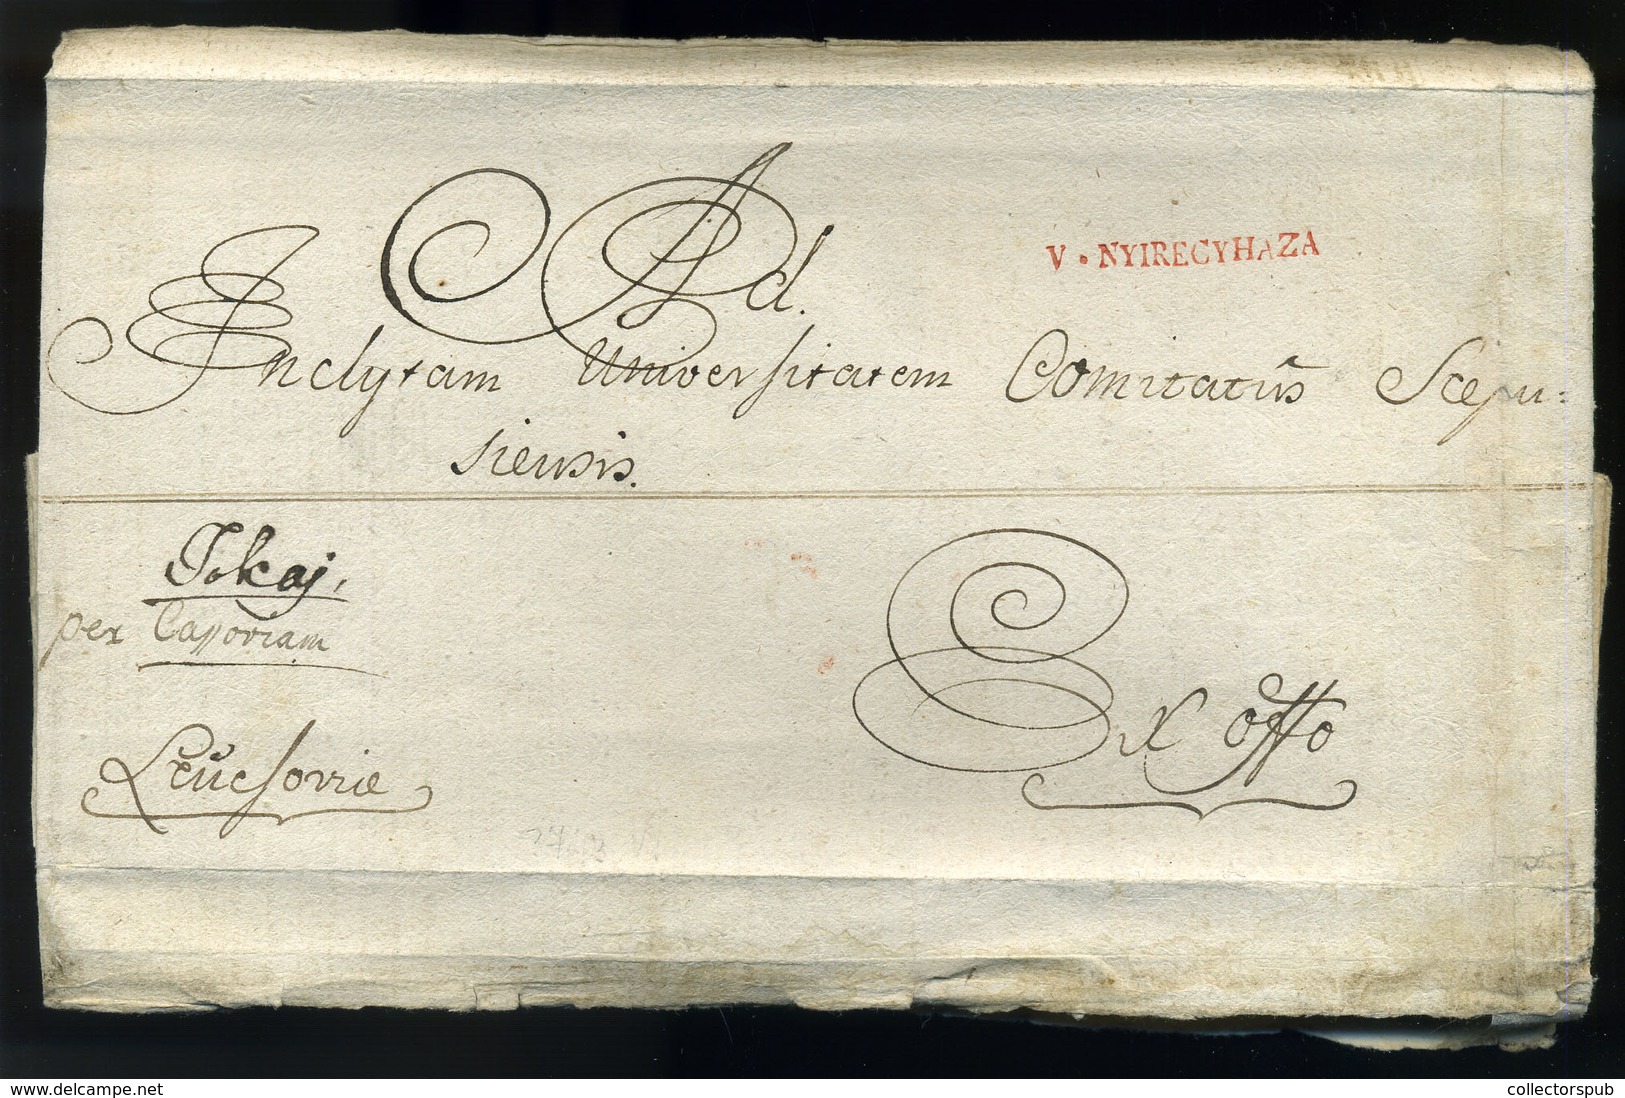 Ad.
V. NYIREGYHAZA
Inclytam Universitatem Comitatûs Scepu-
siensis.
Tokaj,
per Cassoviam
Leùchovie
Ex offo
www.delcampe.net
collectorspub